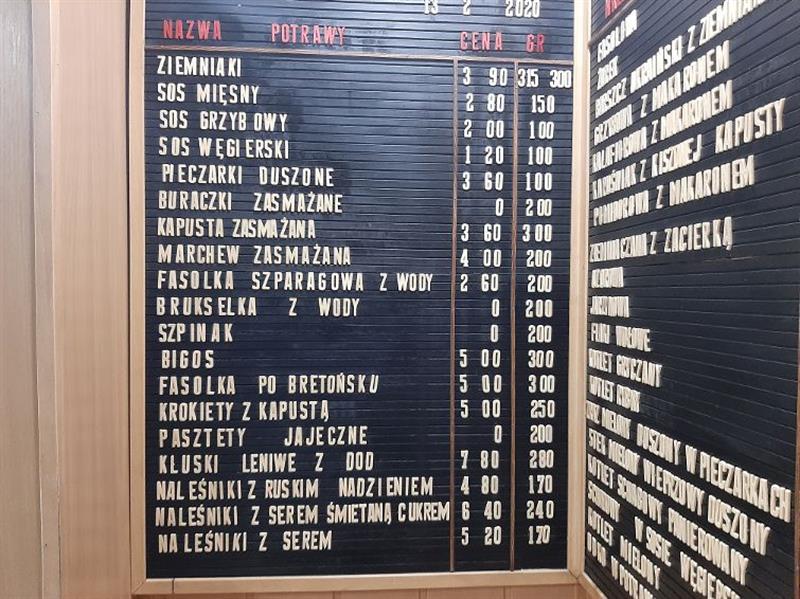 13 2 2020
NAZWA POTRAWY CENA GR
ZIEMNIAKI 3 90 315 300
SOS MIĘSNY 2 80 150
SOS GRZYBOWY 2 00 100
SOS WĘGIERSKI 1 20 100
PIECZARKI DUSZONE 3 60 100
BURACZKI ZASMAŻANE 0 200
KAPUSTA ZASMAŻANA 3 60 300
MARCHEW ZASMAŻANA 4 00 200
FASOLKA SZPARAGOWA Z WODY 2 60 200
BRUKSELKA Z WODY 0 200
SZPINAK 0 200
BIGOS 5 00 300
FASOLKA PO BRETOŃSKU 5 00 300
KROKIETY Z KAPUSTĄ 5 00 250
PASZTETY JAJECZNE 0 200
KLUSKI LENIWE Z DOD 7 80 280
NALEŚNIKI Z RUSKIM NADZIENIEM 4 80 170
NALEŚNIKI Z SEREM ŚMIETANĄ CUKREM 6 40 240
NALEŚNIKI Z SEREM 5 20 170
FASOLOWA
ŻUREK
BARSZCZ UKRAIŃSKI Z ZIEMNIAK
GRZYBOWA Z MAKARONEM
KALAFIOROWA Z MAKARONEM
KAPUŚNIAK Z KISZONEJ KAPUSTY
POMIDOROWA Z MAKARONEM
ZIEMNIACZANA Z ZACIERKĄ
JARZYNOWA
FLAKI WOŁOWE
KOTLET GRYCZANY
KOTLET RYBNY
MIELONY DUSZONY W PIECZARKACH
STEK MIELONY WIEPRZOWY DUSZONY
KOTLET SCHABOWY PANIEROWANY
SCHABOWY W SOSIE WĘGIERS
KOTLET MIELONY